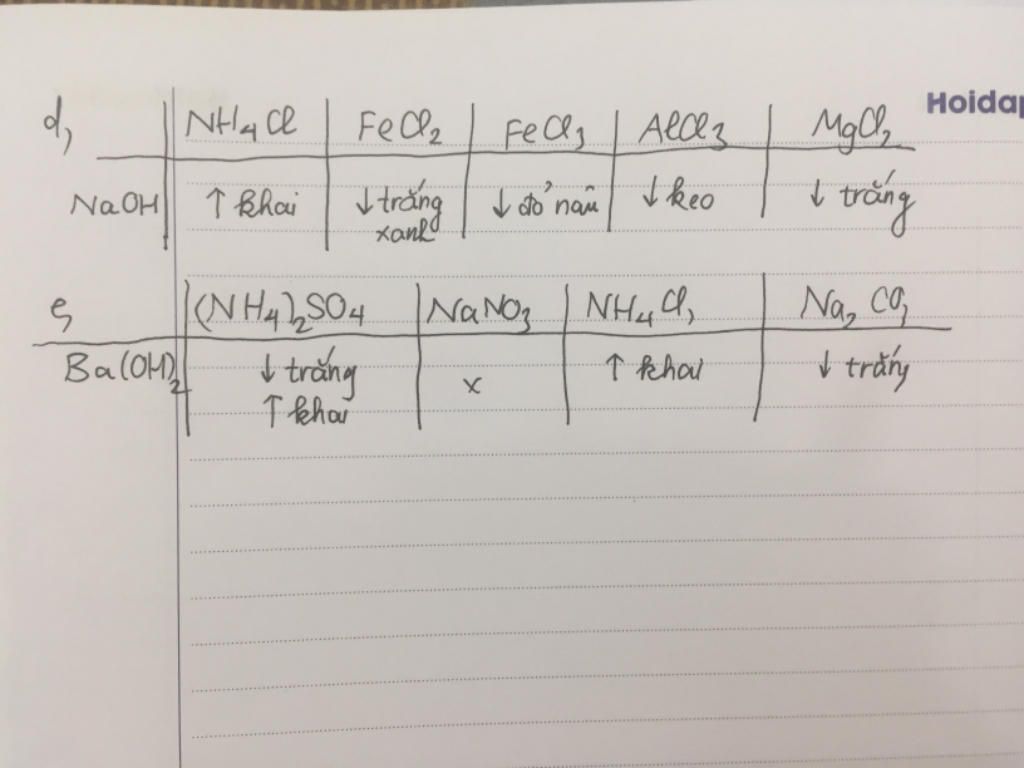 Hoidap
d, NH₄Cl FeCl₂ FeCl₃ AlCl₃ MgCl₂
NaOH ↑ khai ↓ trắng ↓ đỏ nâu ↓ keo ↓ trắng
xanh
e, (NH₄)₂SO₄ NaNO₃ NH₄Cl, Na₂CO₃
Ba(OH)₂ ↓ trắng x ↑ khai ↓ trắng
↑ khai